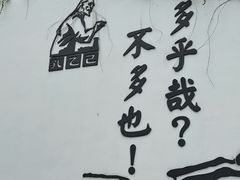 多乎哉？
不多也！